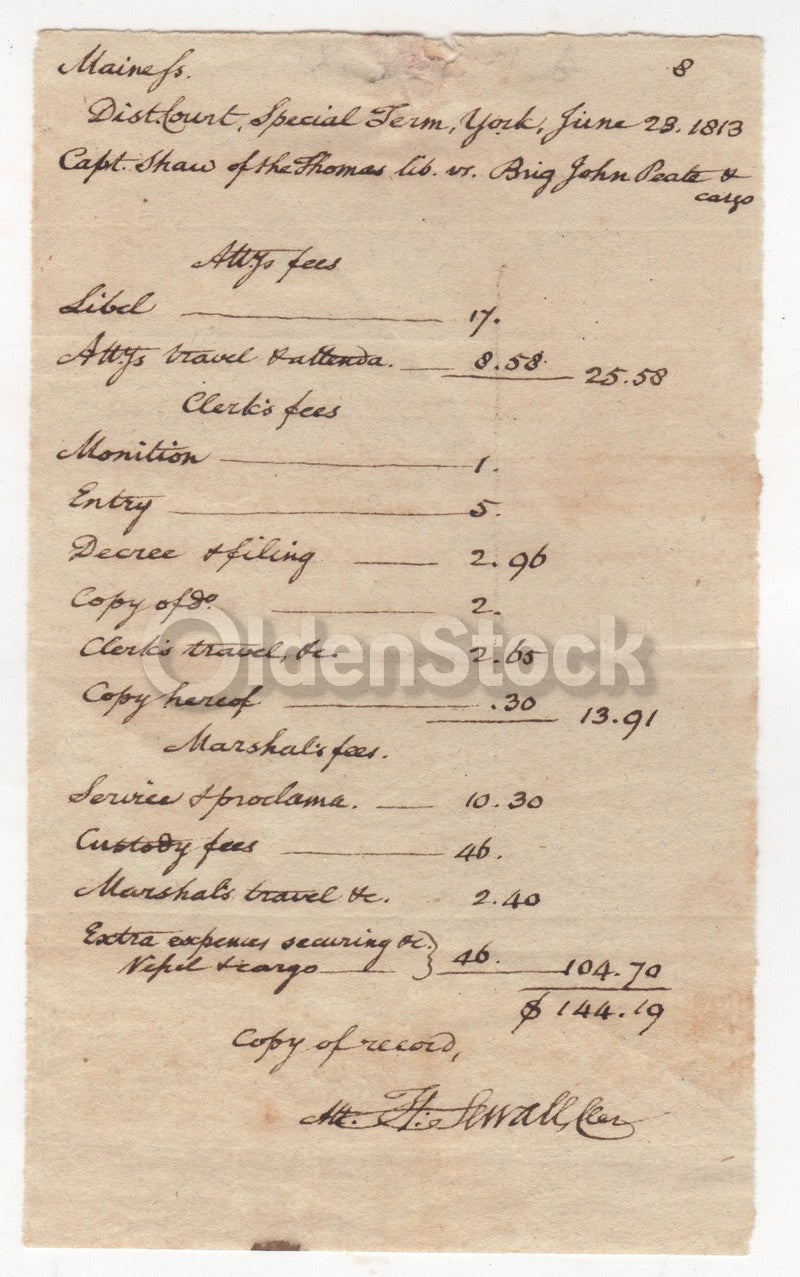 Maine ſs. 8
Dist. Court, Special Term, York, June 23. 1813
Capt. Shaw of the Thomas lib. vs. Brig John Peate &
cargo
Attys fees
Libel 17.
Attys travel & attenda. 8.58 25.58
Clerk's fees
Monition 1.
Entry 5.
Decree & filing 2.96
Copy of do. 2.
OldenStock
Clerk's travel, &c. 2.65
Copy hereof .30 13.91
Marshal's fees.
Service & proclama. 10.30
Custody fees 46.
Marshal's travel &c. 2.40
Extra expences securing &c.
Veſsel & cargo } 46. 104.70
$ 144.19
Copy of record,
Att. H. Sewall, Cler